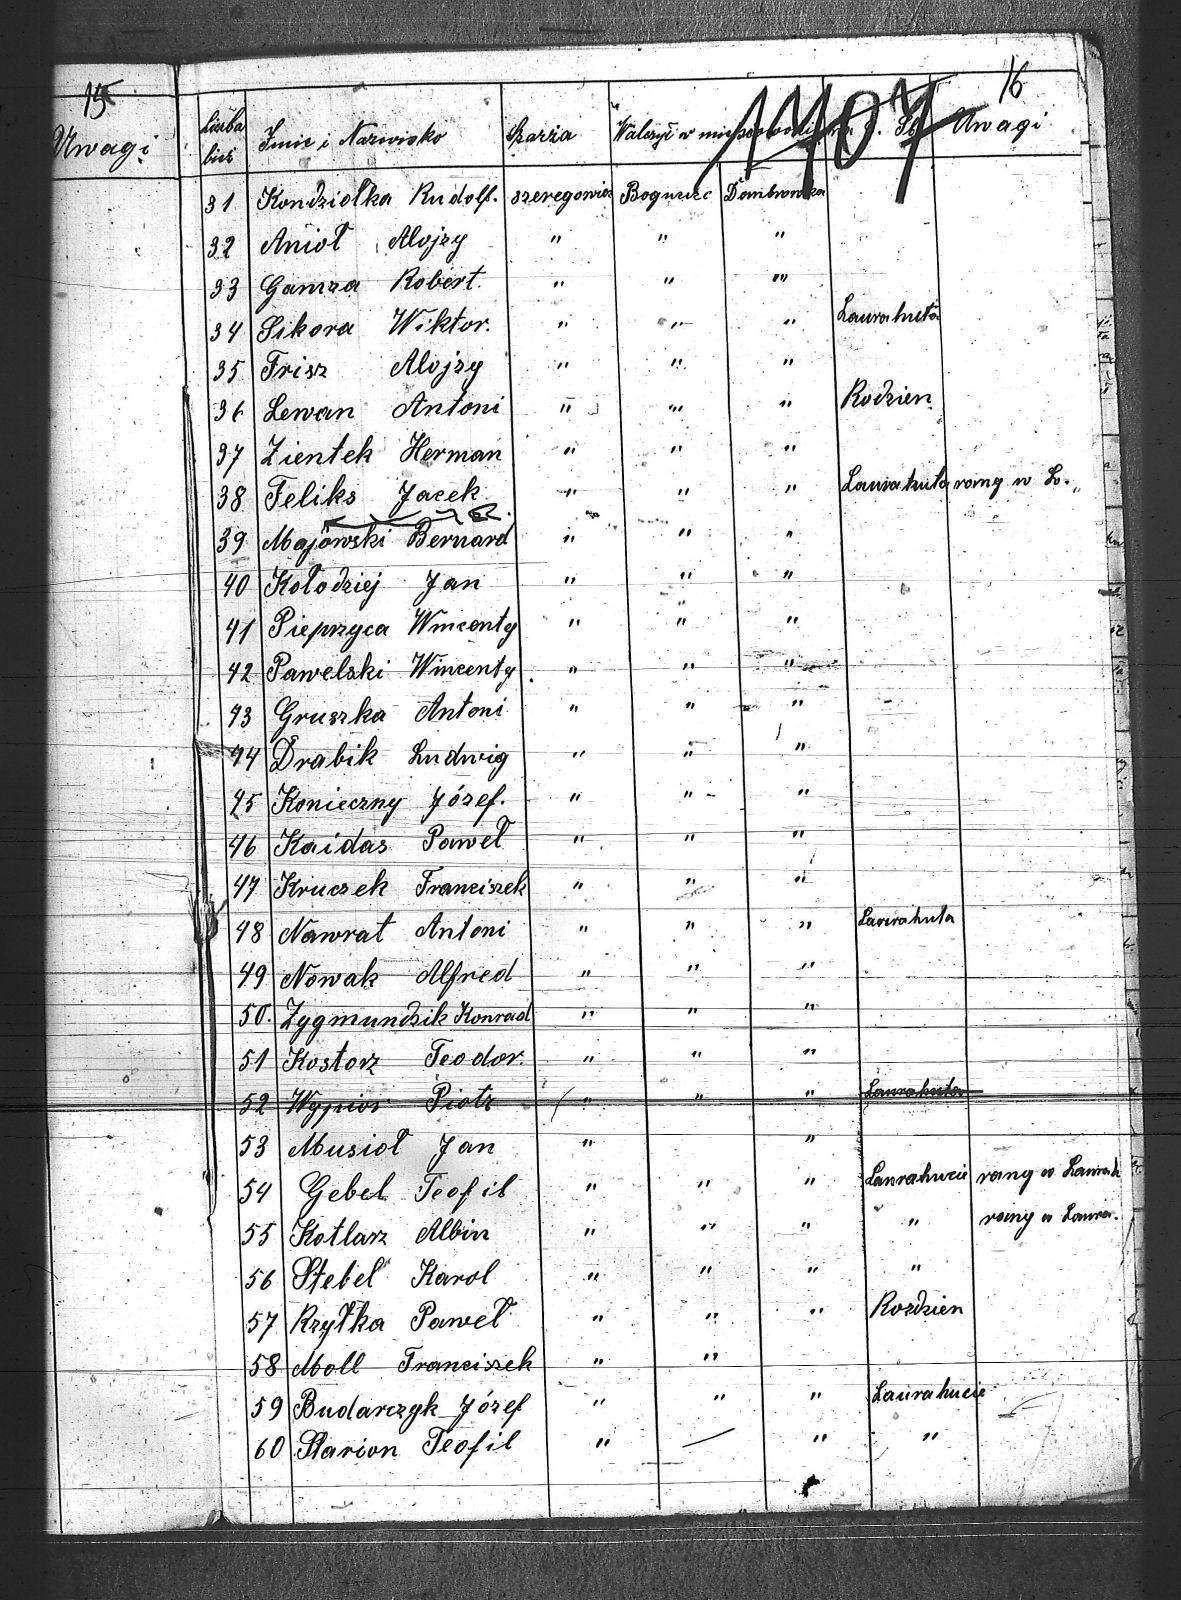 15
Uwagi
16
1707
Liczba bież Imię i Nazwisko Szarża Walczył w miejscowości Uwagi
31 Kondziołka Rudolf. szeregowiec Bogucic Dombrowka
32 Anioł Alojzy " " "
33 Gamza Robert. " " "
34 Sikora Wiktor. " " " Laurahuta
35 Frisz Alojzy " " "
36 Lewan Antoni " " " Rodzien
37 Zientek Herman " " "
38 Feliks Jacek " " " Laurahuta rany w L.
39 Majowski Bernard " " "
40 Kołodziej Jan " " "
41 Pieprzyca Wincenty " " "
42 Pawelski Wincenty " " "
43 Gruszka Antoni " " "
44 Drabik Ludwig " " "
45 Konieczny Józef. " " "
46 Kaidas Paweł " " "
47 Kruczek Franciszek " " "
48 Nawrat Antoni " " " Laurahuta
49 Nowak Alfred " " "
50. Zygmundzik Konrad " " "
51 Kostorz Teodor. " " "
52 Wypior Piotr " " " Laurahuta
53 Musioł Jan " "
54 Gebel Teofil " " " Laurahucie rany w Laurah
55 Kotlarz Albin " " " " rany w Laura.
56 Stebel Karol " " " "
57 Rzytka Paweł " " " Rozdzien
58 Moll Franciszek " "
59 Budarczyk Józef " " " Laurahucie
60 Slarion Teofil " — " "